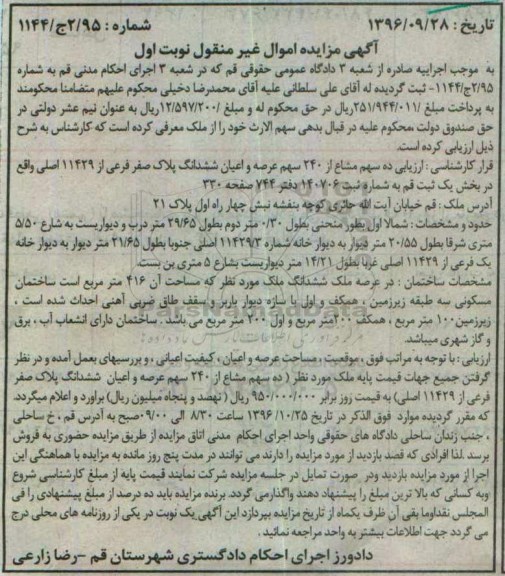 تاریخ : ۱۳۹۶/۰۹/۲۸ شماره : ۲/۹۵ج/۱۱۴۴
آگهی مزایده اموال غیر منقول نوبت اول
به موجب اجراییه صادره از شعبه ۳ دادگاه عمومی حقوقی قم که در شعبه ۳ اجرای احکام مدنی قم به شماره
۲/۹۵ج/۱۱۴۴- ثبت گردیده له آقای علی سلطانی علیه آقای محمدرضا دخیلی محکوم علیهم متضامنا محکومند
به پرداخت مبلغ /۲۵۱/۹۴۴/۰۱۱ریال در حق محکوم له و مبلغ /۱۲/۵۹۷/۲۰۰ریال به عنوان نیم عشر دولتی در
حق صندوق دولت ،محکوم علیه در قبال بدهی سهم الارث خود را از ملک معرفی کرده است که کارشناس به شرح
ذیل ارزیابی کرده است.
قرار کارشناسی : ارزیابی ده سهم مشاع از ۲۴۰ سهم عرصه و اعیان ششدانگ پلاک صفر فرعی از ۱۱۴۲۹ اصلی واقع
در بخش یک ثبت قم به شماره ثبت ۱۴۰۷۰۶ دفتر ۷۴۴ صفحه ۲۳۰
آدرس ملک : قم خیابان آیت الله حائری کوچه بنفشه نبش چهار راه اول پلاک ۲۱
حدود و مشخصات : شمالا اول بطور منحنی بطول ۰/۳۰ متر دوم بطول ۲۹/۶۵ متر درب و دیواریست به شارع ۵/۵۰
متری شرقا بطول ۲۰/۵۵ متر دیوار به دیوار خانه شماره ۱۱۴۲۹/۳ اصلی جنوبا بطول ۲۱/۶۵ متر دیوار به دیوار خانه
یک فرعی از ۱۱۴۲۹ اصلی غربا بطول ۱۴/۲۱ متر دیواریست بشارع ۵ متری بن بست.
مشخصات ساختمان : در عرصه ملک ششدانگ ملک مورد نظر که مساحت آن ۴۱۶ متر مربع است ساختمان
مسکونی سه طبقه زیرزمین ، همکف و اول با سازه دیوار باربر و سقف طاق ضربی آهنی احداث شده است ،
زیرزمین۱۰۰ متر مربع ، همکف ۲۰۰متر مربع و اول ۲۰۰ متر مربع می باشد . ساختمان دارای انشعاب آب ، برق
و گاز شهری میباشد.
ارزیابی : با توجه به مراتب فوق ، موقعیت ، مساحت عرصه و اعیان ، کیفیت اعیانی ، و بررسیهای بعمل آمده و در نظر
گرفتن جمیع جهات قیمت پایه ملک مورد نظر ( ده سهم مشاع از ۲۴۰ سهم عرصه و اعیان ششدانگ پلاک صفر
فرعی از ۱۱۴۲۹ اصلی) به قیمت روز برابر ۹۵۰/۰۰۰/۰۰۰ ریال ( نهصد و پنجاه میلیون ریال) برآورد و اعلام میگردد.
که مقرر گردیده موارد فوق الذکر در تاریخ ۱۳۹۶/۱۰/۲۵ ساعت ۸/۳۰ الی ۰۹/۰۰صبح به آدرس قم ، خ ساحلی
، جنب زندان ساحلی دادگاه های حقوقی واحد اجرای احکام مدنی اتاق مزایده از طریق مزایده حضوری به فروش
برسد .لذا افرادی که قصد بازدید از مورد مزایده را دارند می توانند در مدت پنج روز مانده به مزایده با هماهنگی این
اجرا از مورد مزایده بازدید ودر صورت تمایل در جلسه مزایده شرکت نمایند قیمت پایه از مبلغ کارشناسی شروع
وبه کسانی که بالا ترین مبلغ را پیشنهاد دهند واگذارمی گردد. برنده مزایده باید ده درصد از مبلغ پیشنهادی را فی
المجلس نقداوما بقی آن ظرف یکماه از تاریخ مزایده بپردازد این آگهی یک نوبت در یکی از روزنامه های محلی درج
می گردد جهت اطلاعات بیشتر به واحد مراجعه نمائید .
دادورز اجرای احکام دادگستری شهرستان قم -رضا زارعی